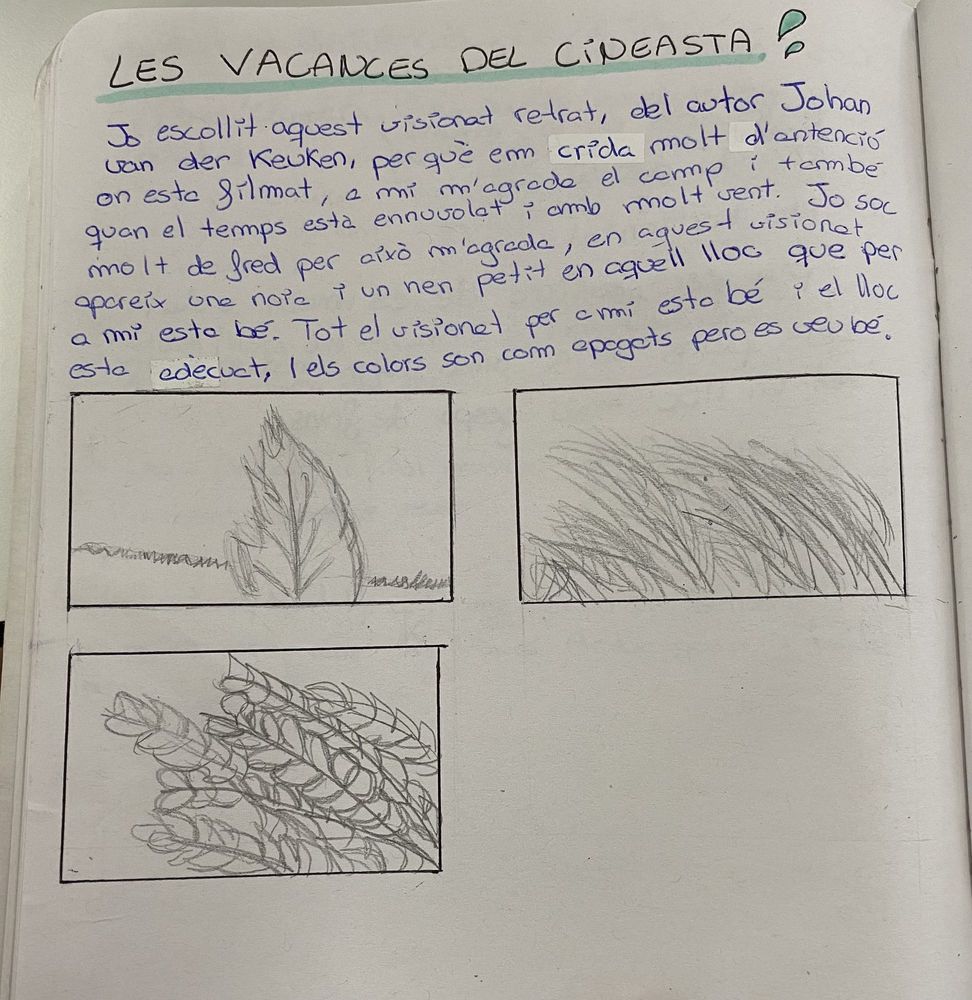 LES VACANCES DEL CINEASTA!
Jo escollit aquest visionat retrat, del autor Johan
van der Keuken, per què em crida molt d'antenció
on esta filmat, a mi m'agrada el camp i també
quan el temps està ennuvolat i amb molt vent. Jo soc
molt de fred per això m'agrada, en aquest visionat
apareix una noia i un nen petit en aquell lloc que per
a mi esta bé. Tot el visionat per a mi esta bé i el lloc
esta adecuat, i els colors son com apagats pero es veu bé.